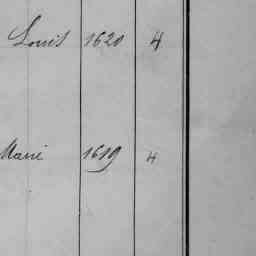 Louis 1620 4
Marie 1619 4